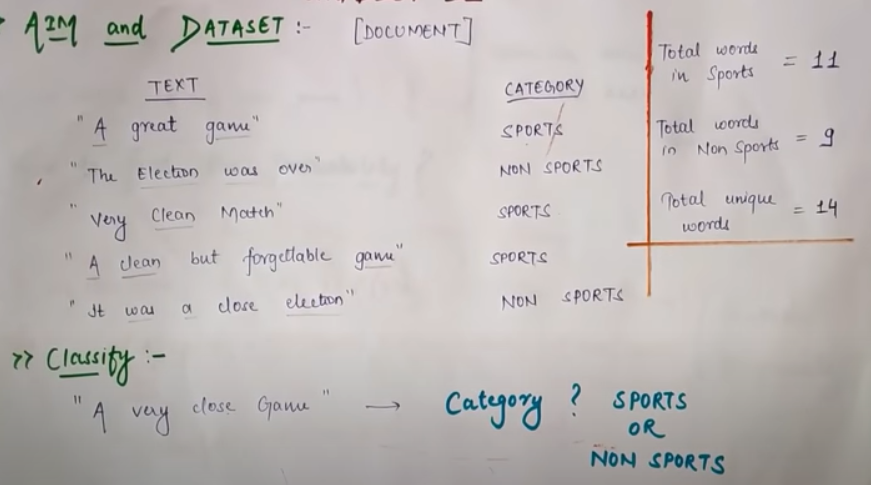 AIM and DATASET :- [DOCUMENT]
TEXT CATEGORY
"A great game" SPORTS
"The Election was over" NON SPORTS
"Very Clean Match" SPORTS
"A clean but forgettable game" SPORTS
"It was a close election" NON SPORTS
Total words
in Sports = 11
Total words
in Non Sports = 9
Total unique
words = 14
>> Classify :-
"A very close Game" → Category ? SPORTS
OR
NON SPORTS